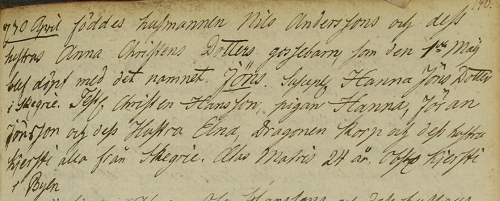 30 April föddes husmannen Nils Anderssons och dess
hustrus Anna Christens Dotters gossebarn som den 1ste Maij
blef döpt med det namnet Jöns. Suscep. Hanna Jöns Dotter
i Skegrie. Test. Christen Hansson, pigan Hanna, Jöran
Jönsson och dess Hustru Elna, Dragonen Skorp och dess hustru
Kjersti alla från Skegrie. Ætas Matris 24 år. Obst. Kjersti
i Byen